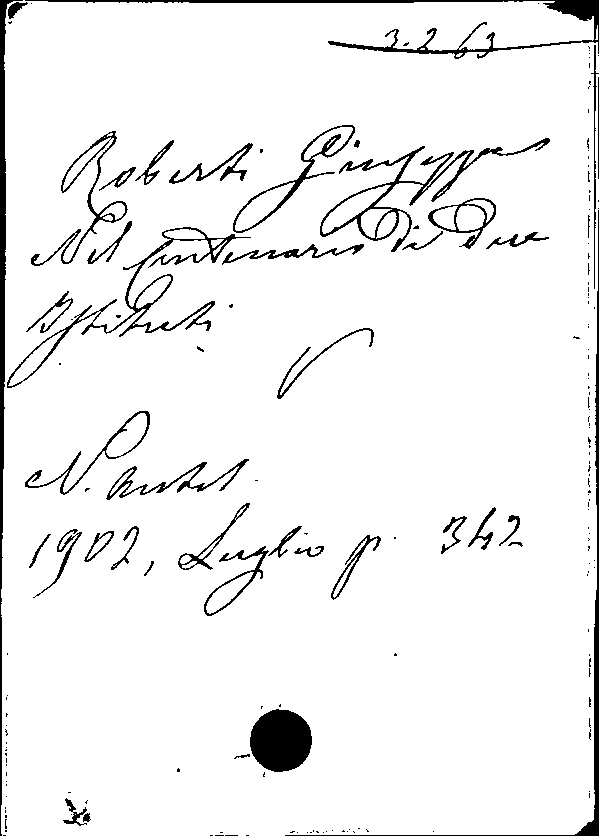 3.2 63
Roberti Giuseppe
Nel Centenario di due
Istituti
N. Antol.
1902, Luglio p. 342